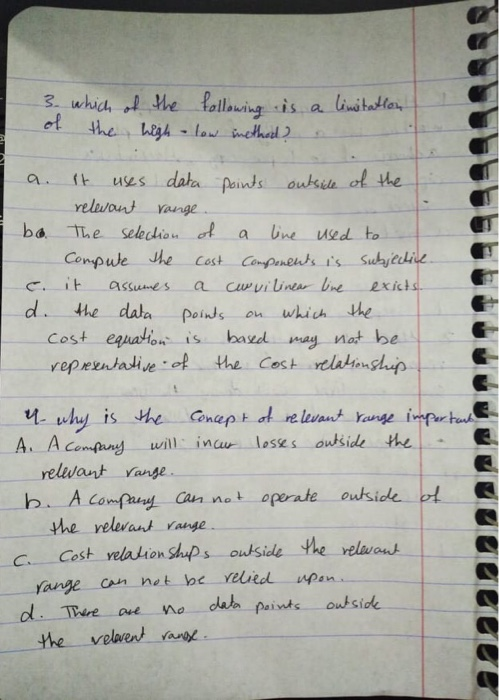 3- which of the following is a limitation
of the high-low method?
a. It uses data points outside of the
relevant range.
b. The selection of a line used to
Compute the cost components is subjective
c. it assumes a curvilinear line exists.
d. the data points on which the
cost equation is based may not be
representative of the cost relationship.
4- why is the concept of relevant range important
A. A company will incur losses outside the
relevant range.
b. A company can not operate outside of
the relevant range.
c. Cost relationships outside the relevant
range can not be relied upon.
d. There are no data points outside
the relevent range.